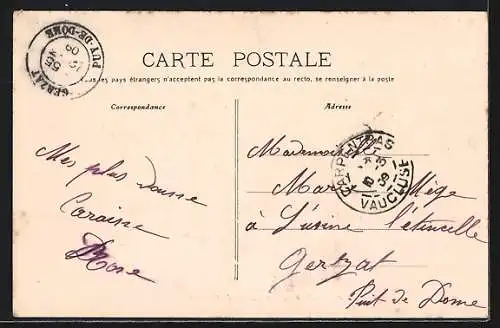 CARTE POSTALE
Tous les pays étrangers n'acceptent pas la correspondance au recto, se renseigner à la poste
Correspondance
Adresse
Mes plus dousse
Caraisse
Rose
Mademoiselle
Marie Mége
à L'usine l'étincelle
Gerzat
Puit de Dome
GERZAT
PUY-DE-DOME
CARPENTRAS
VAUCLUSE